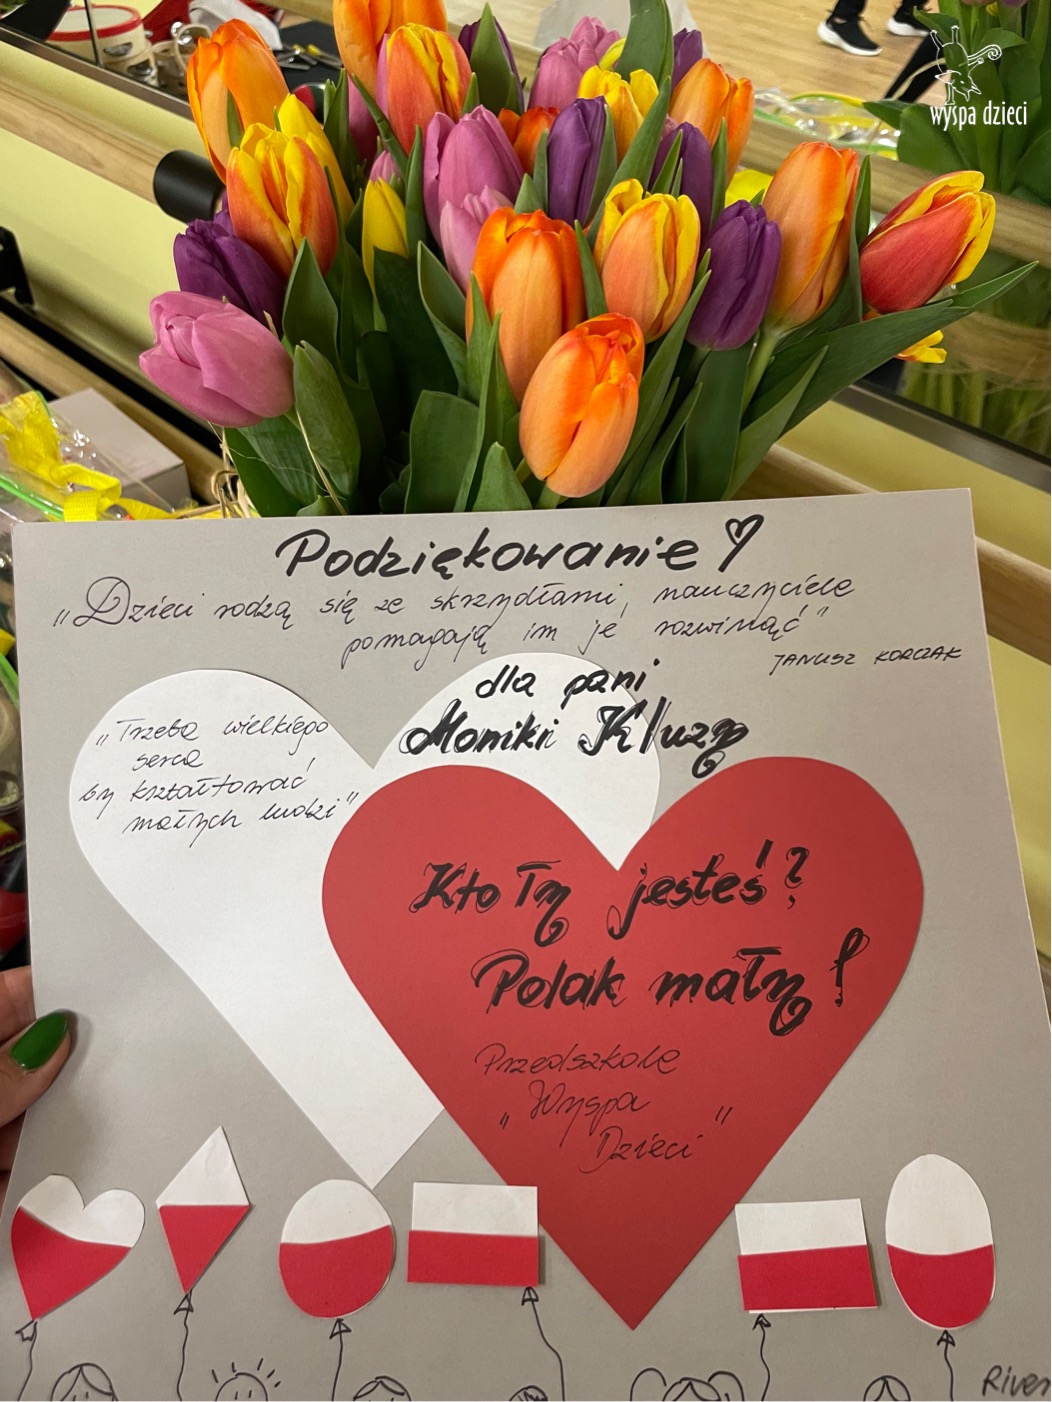 wyspa dzieci
Podziękowanie
„Dzieci rodzą się ze skrzydłami, nauczyciele
pomagają im je rozwinąć”
JANUSZ KORCZAK
dla pani
Moniki Kluzy
„Trzeba wielkiego
serca
by kształtować
małych ludzi”
Kto Ty jesteś?
Polak mały!
Przedszkole
„Wyspa
Dzieci”
River